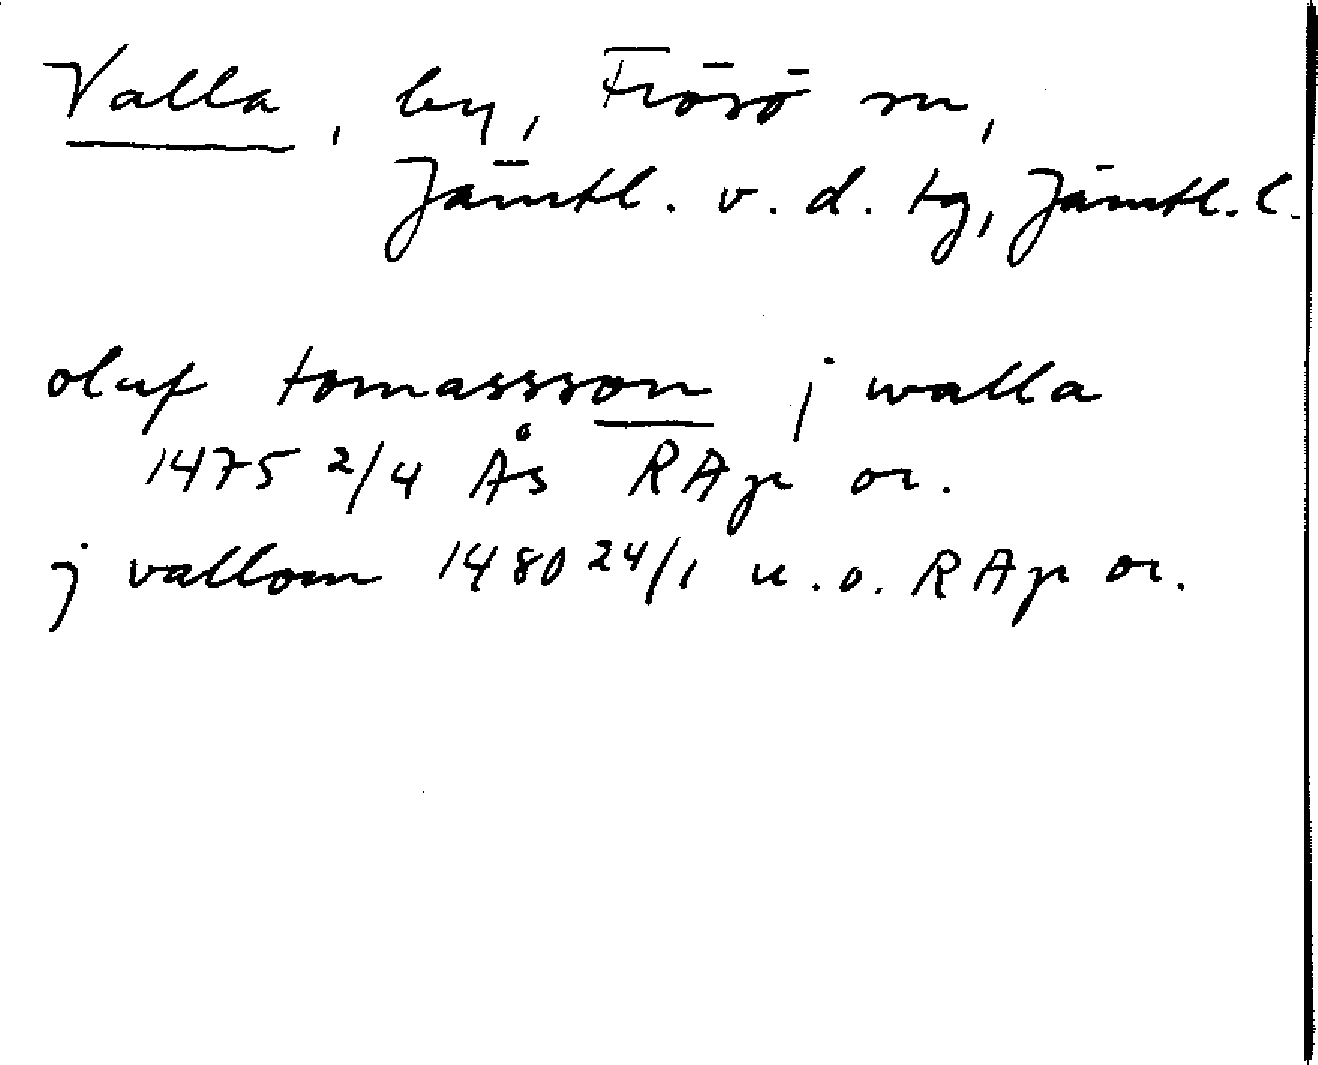 Valla, by, Frösö sn,
Jämtl. v. d. tg, Jämtl. l.
oluf tomassson j walla
1475 2/4 Ås RAp or.
j vallom 1480 24/1 u.o. RAp or.